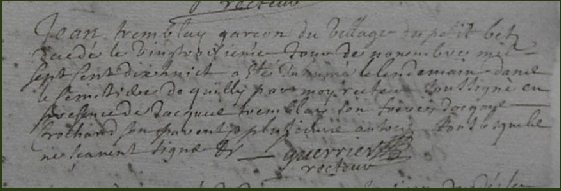 recteur
Jean tremblay garçon du village du petit betz
decedé le vingt troisieme Jour de novembre mil
sept cent dixhuict a eté Inhumé le lendemain dans
le Cemitiere de quilly par moy recteur Soussigné en
presence de Jacque tremblay son frere
rochand son parent & plusieurs autres tous lesquels
ne scavent signer &
guerrier
recteur